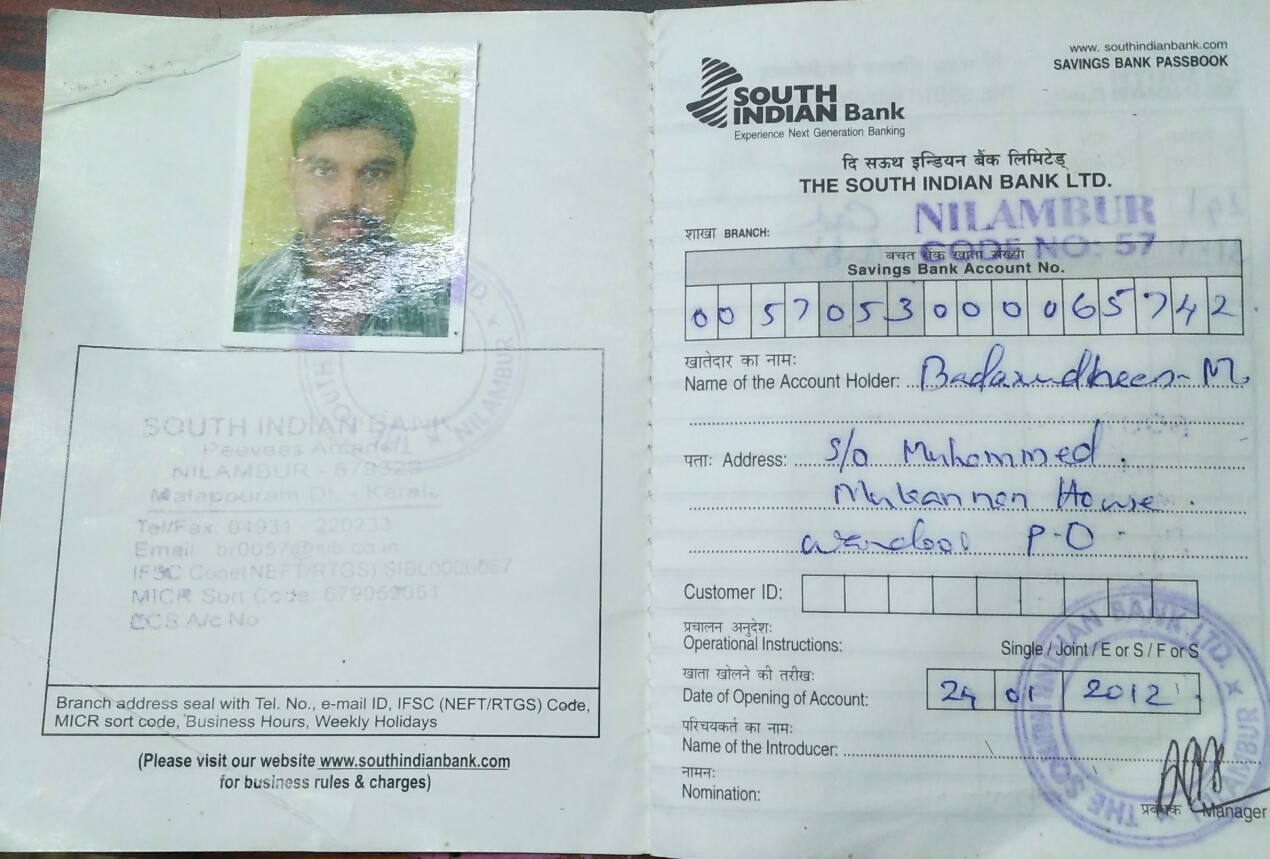 SOUTH INDIAN BANK
NILAMBUR - 679329
Malappuram Dt. - Kerala
Tel/Fax: 04931 - 220233
Email : br0057@sib.co.in
IFSC Code(NEFT/RTGS) SIBL0000057
MICR Sort Code: 679059051
ECS A/c No
Branch address seal with Tel. No., e-mail ID, IFSC (NEFT/RTGS) Code,
MICR sort code, Business Hours, Weekly Holidays
(Please visit our website www.southindianbank.com
for business rules & charges)
www. southindianbank.com
SAVINGS BANK PASSBOOK
SOUTH
INDIAN Bank
Experience Next Generation Banking
दि सऊथ इन्डियन बैंक लिमिटेड्
THE SOUTH INDIAN BANK LTD.
शाखा BRANCH: NILAMBUR
CODE NO: 57
बचत बैंक खाता संख्या
Savings Bank Account No.
0057053000065742
खातेदार का नाम:
Name of the Account Holder: Badarudheen-M
पता: Address: S/o Muhammed.
Mukannan House.
wandoor P-O
Customer ID:
प्रचालन अनुदेश:
Operational Instructions: Single / Joint / E or S / F or S
खाता खोलने की तरीख:
Date of Opening of Account: 24 01 2012
परिचयकर्त का नाम:
Name of the Introducer:
नामन:
Nomination:
प्रबंधक Manager
THE SOUTH INDIAN BANK LTD. NILAMBUR